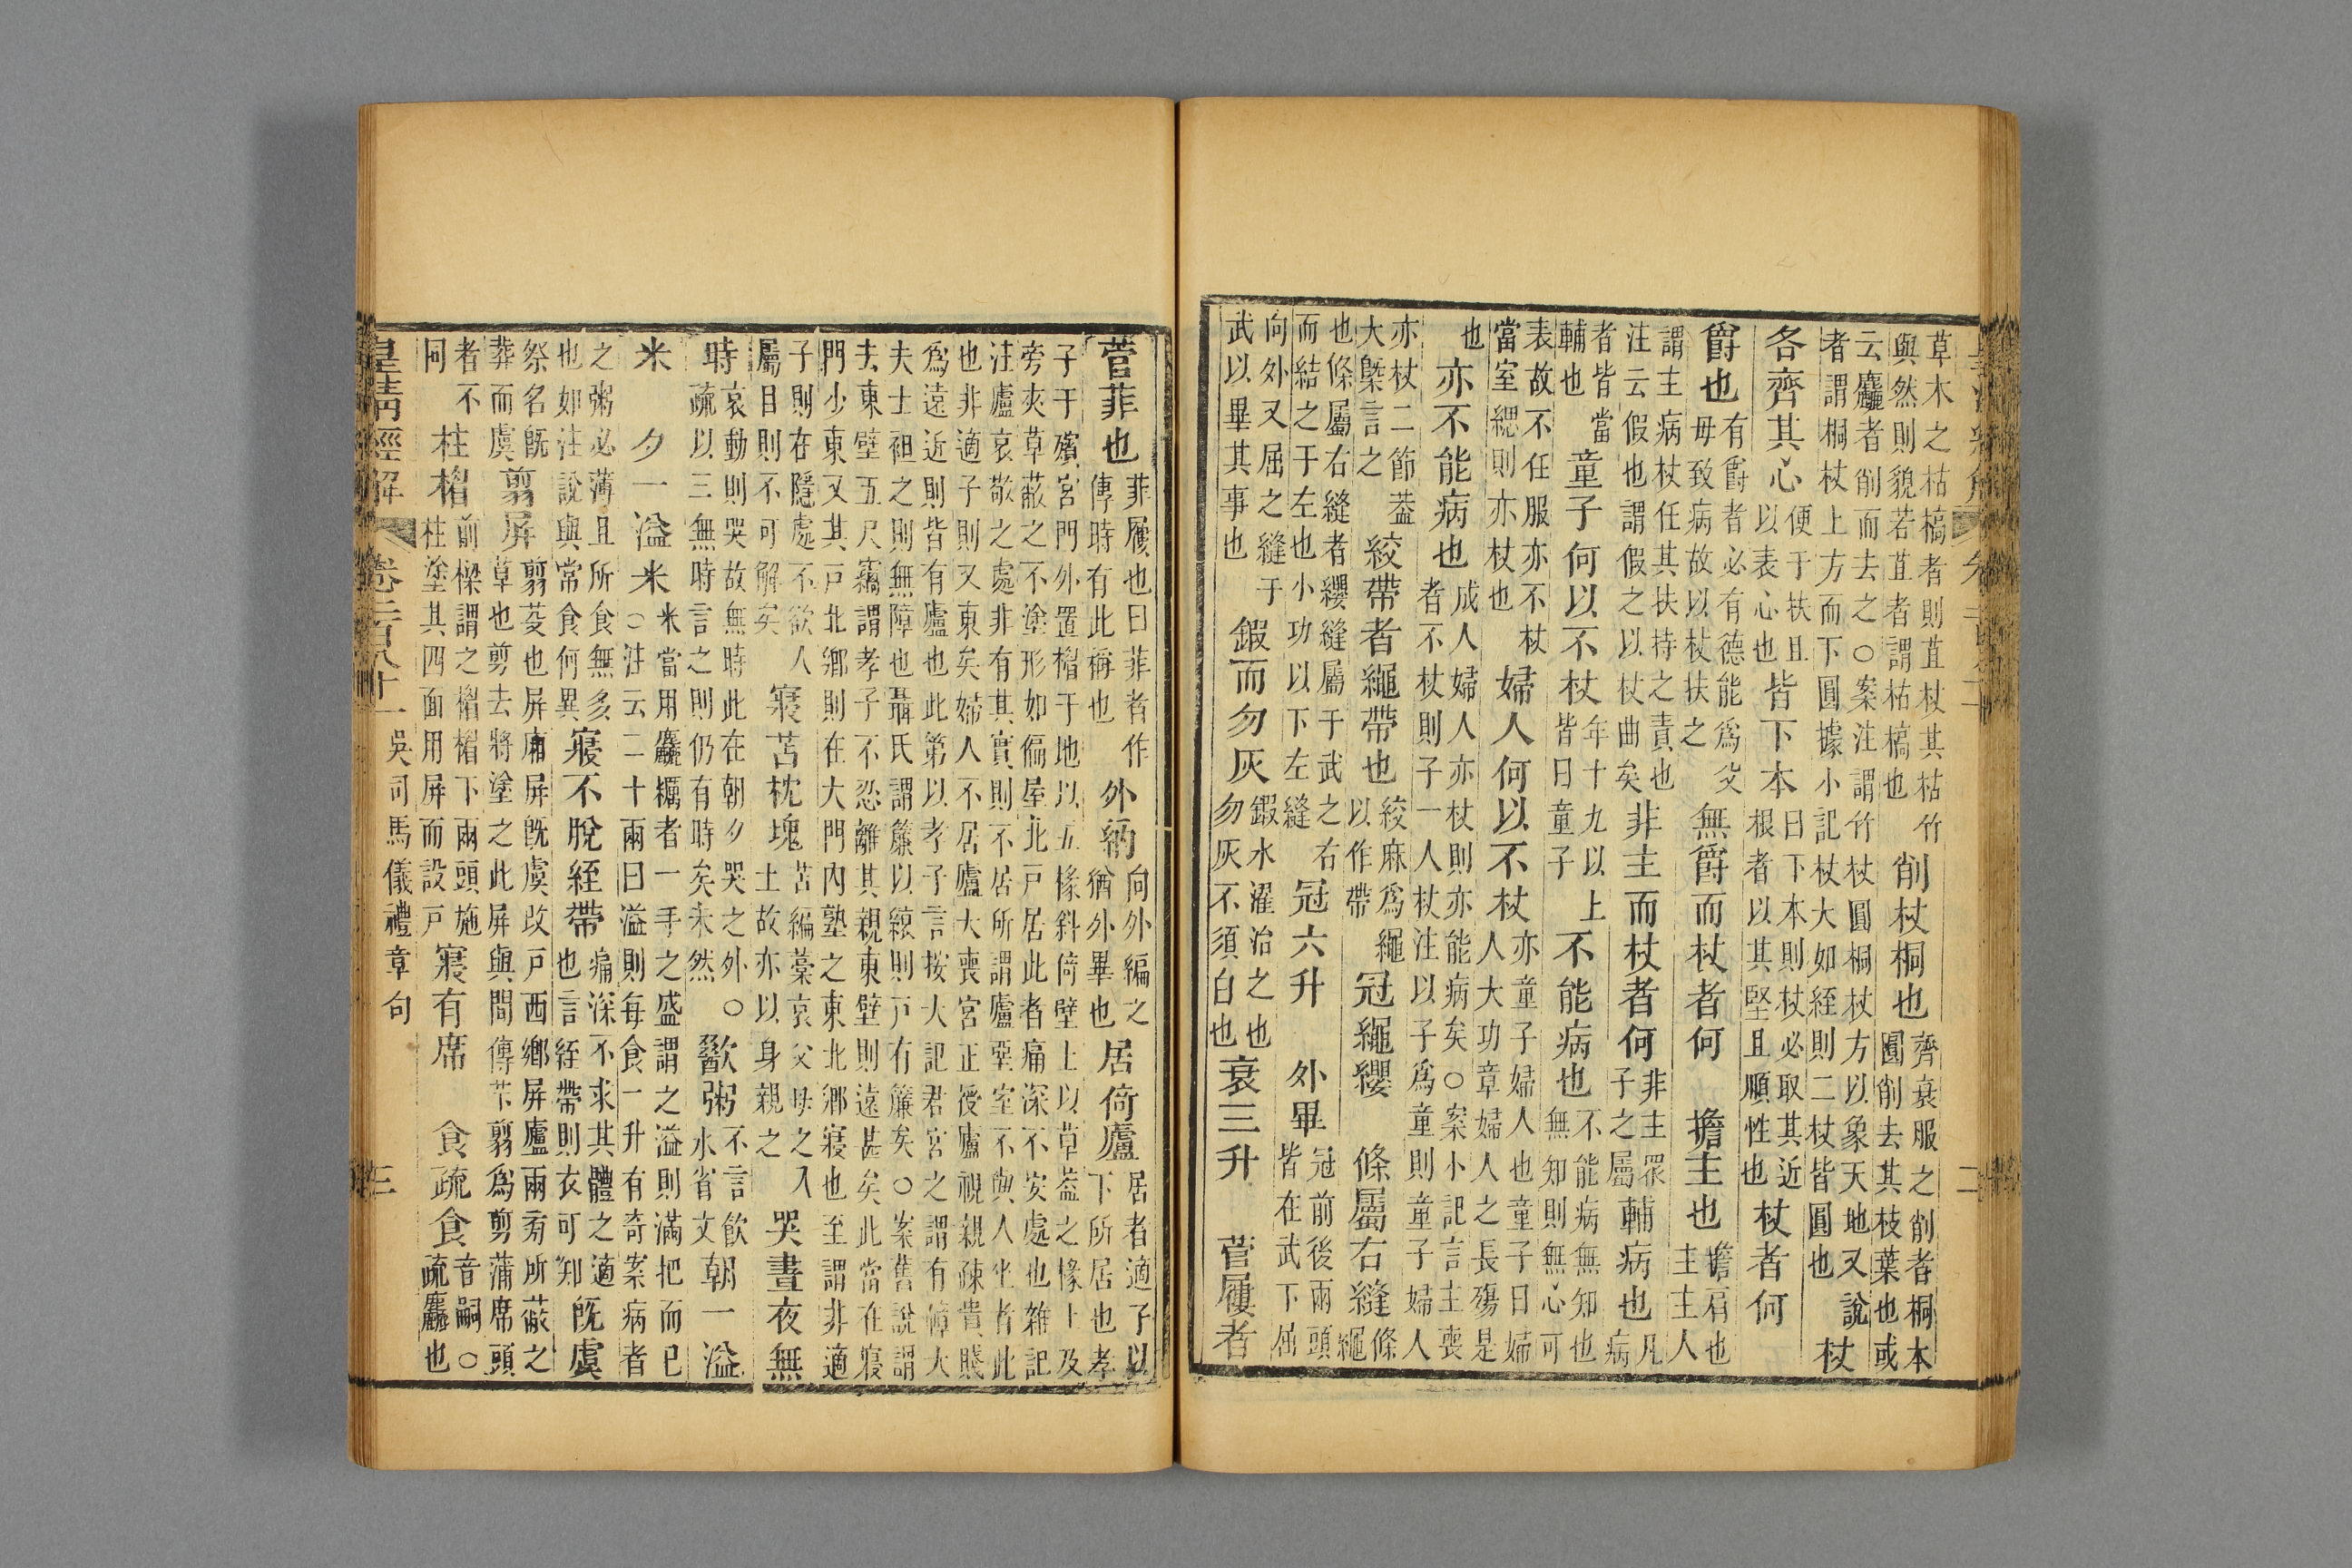 草木之枯槁者則苴杖其枯竹
與然則貌若苴者謂枯槁也
削杖桐也
齊衰服之削者桐本
圓削去其枝葉也或
云麤者削而去之○案注謂竹杖圓桐杖方以象天地又說
者謂桐杖上方而下圓據小記杖大如絰則二杖皆圓也
杖
各齊其心
便于扶且
以表心也
皆下本
曰下本則杖必取其近
根者以其堅且順性也
杖者何
爵也
有爵者必有德能爲父
毋致病故以杖扶之
無爵而杖者何
擔主也
擔肩也
主主人
謂主病杖任其扶持之責也
注云假也謂假之以杖曲矣
非主而杖者何
非主眾
子之屬
輔病也
凡病
者皆當
輔也
童子何以不杖
年十九以上
皆曰童子
不能病也
不能病無知也
無知則無心可
表故不任服亦不杖
當室緦則亦杖也
婦人何以不杖
亦童子婦人也童子曰婦
人大功章婦人之長殤是
也
亦不能病也
成人婦人亦杖則亦能病矣○案小記言主喪
者不杖則子一人杖注以子爲童則童子婦人
亦杖二節葢
大槩言之
絞帶者繩帶也
絞麻爲繩
以作帶
冠繩纓
條屬右縫
條繩
也條屬右縫者纓縫屬于武之右
而結之于左也小功以下左縫
冠六升
外畢
冠前後兩頭
皆在武下屈
向外又屈之縫于
武以畢其事也
鍜而勿灰
鍜水濯治之也
勿灰不須白也
衰三升
菅屨者
菅菲也
菲屨也曰菲者作
傳時有此稱也
外納
向外編之
猶外畢也
居倚廬
居者適子以
下所居也孝
子于殯宮門外置楣于地以五椽斜倚壁上以草葢之椽上及
旁夾草蔽之不塗形如偏屋北戸居此者痛深不安處也雜記
注廬哀敬之處非有其實則不居所謂廬堊室不與人坐者此
也非適子則又東矣婦人不居廬大喪宮正授廬視親疎貴賤
爲遠近則皆有廬也此第以孝子言按大記君宮之謂有障大
夫士袒之則無障也聶氏謂簾以綾則戸有簾矣○案舊說謂
去東壁五尺竊謂孝子不忍離其親東壁則遠甚矣此當在寢
門少東又其戸北鄉則在大門內塾之東北鄉寢也至謂非適
子則在隱處不欲人
屬目則不可解矣
寢苫枕塊
苫編藁哀父母之入
土故亦以身親之
哭晝夜無
時
哀動則哭故無時此在朝夕哭之外○
疏以三無時言之則仍有時矣未然
歠粥
不言飲
水省文
朝一溢
米
夕一溢米
米當用麤糲者一手之盛謂之溢則滿把而已
○注云二十兩曰溢則每食一升有奇案病者
之粥必薄且所食無多
也如注說與常食何異
寢不脫絰帶
痛深不求其體之適
也言絰帶則衣可知
既虞
祭名既
葬而虞
翦屏
翦茭也屏廂屏既虞改戸西鄉屏廬兩旁所蔽之
草也剪去將塗之此屏與間傳苄翦爲剪蒲席頭
者不
同
柱楣
前樑謂之楣楣下兩頭施
柱塗其四面用屏而設戸
寢有席
食疏食
音嗣○
疏麤也
皇清經解
卷二百八十一
吳司馬儀禮章句
三
二